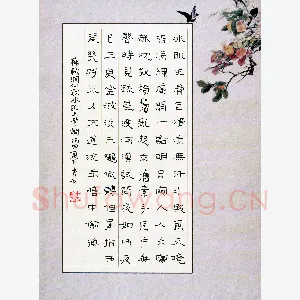 冰肌玉骨自清涼無汗水殿風來暗
香滿繡簾開一點明月窺人人未寢
欹枕釵橫鬢亂起來攜素手庭戶無
聲時見疏星渡河漢試問夜如何夜
已三更金波淡玉繩低轉但屈指西
風幾時來又不道流年暗中偷換
蘇軾洞仙歌冰肌玉骨
Shuhuawang.CN